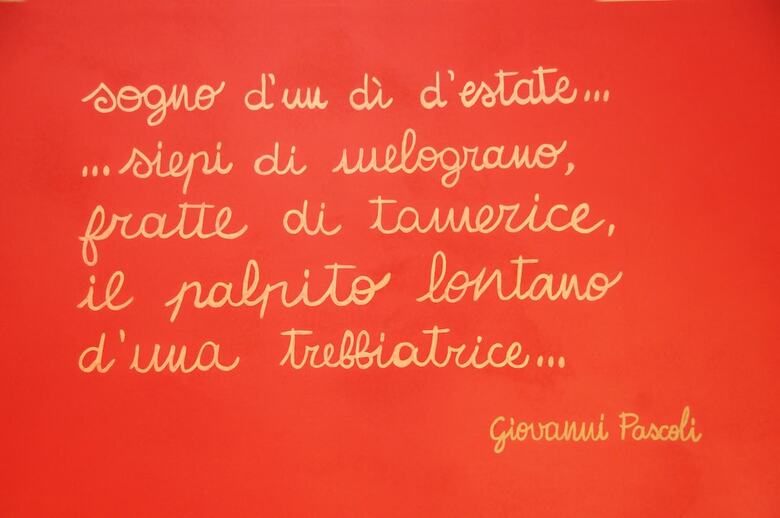 sogno d'un dì d'estate...
...siepi di melograno,
fratte di tamerice,
il palpito lontano
d'una trebbiatrice...
Giovanni Pascoli